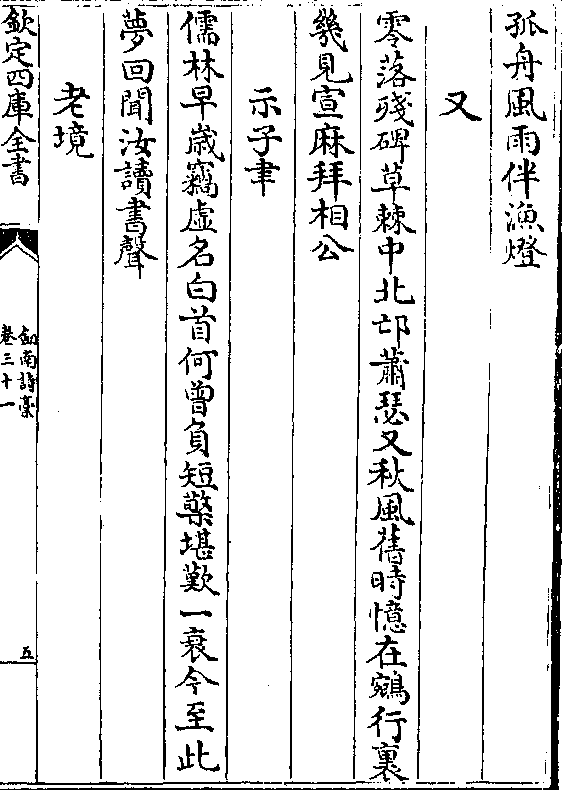 孤舟風雨伴漁燈
又
零落殘碑草棘中北邙蕭瑟又秋風舊時憶在鵷行裏
幾見宣麻拜相公
示子聿
儒林早歲竊虛名白首何曾負短檠堪歎一衰今至此
夢回聞汝讀書聲
老境
欽定四庫全書
劍南詩藁
卷三十一
五